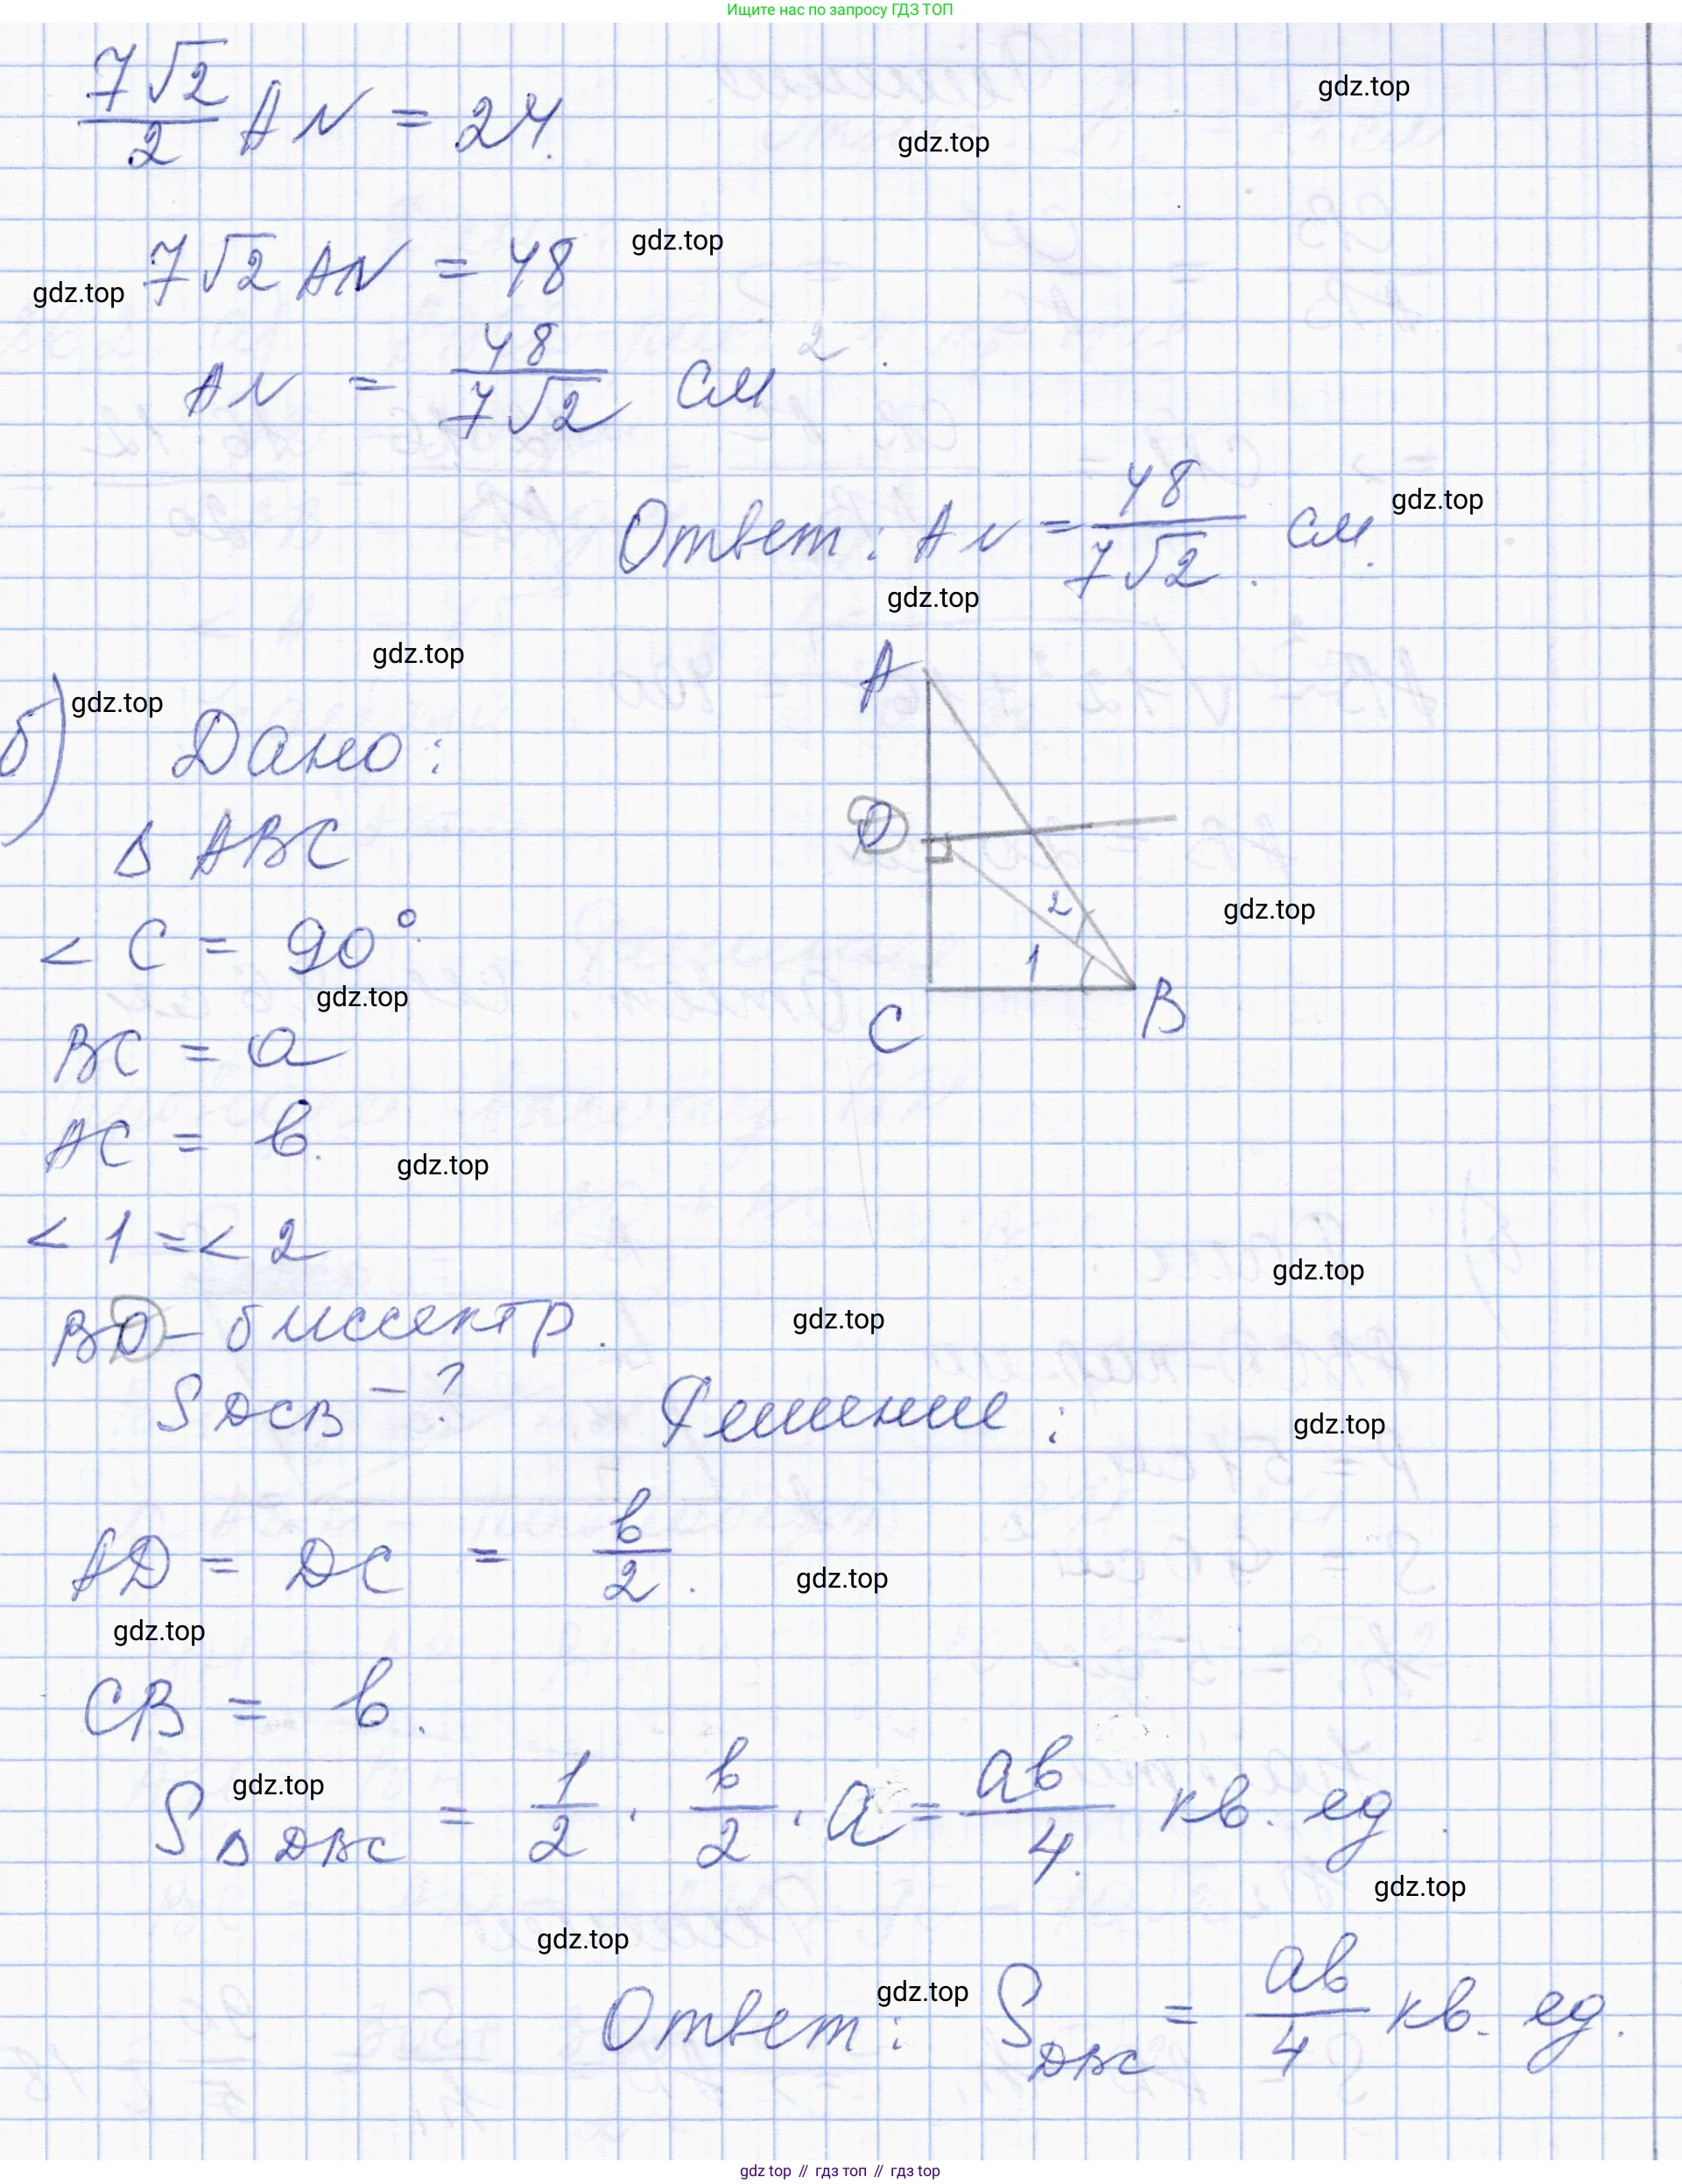 Ищите нас по запросу ГДЗ ТОП
7√2/2 AN = 24.
gdz.top
gdz.top
7√2 AN = 48
gdz.top
gdz.top
AN = 48/7√2 см²
Ответ: AN = 48/7√2 . см.
gdz.top
gdz.top
gdz.top
A
б) Дано:
gdz.top
Δ ABC
D
2
< C = 90°.
gdz.top
1
gdz.top
C
B
BC = a
AC = b.
gdz.top
< 1 = < 2
gdz.top
BD - биссектр.
gdz.top
S DCB - ? Решение:
gdz.top
AD = DC = b/2.
gdz.top
gdz.top
CB = b.
gdz.top
S Δ DBC = 1/2 · b/2 · a = ab/4. кв. ед.
gdz.top
gdz.top
gdz.top
Ответ: S DBC = ab/4 кв. ед.
gdz top // гдз топ // gdz top